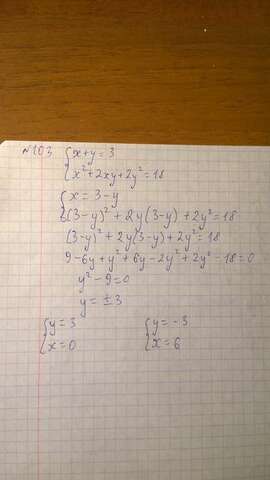 №103 { x+y=3
{ x²+2xy+2y²=18
{ x=3-y
{ (3-y)²+2y(3-y)+2y²=18
(3-y)²+2y(3-y)+2y²=18
9-6y+y²+6y-2y²+2y²-18=0
y²-9=0
y=±3
{ y=3 { y=-3
{ x=0 { x=6